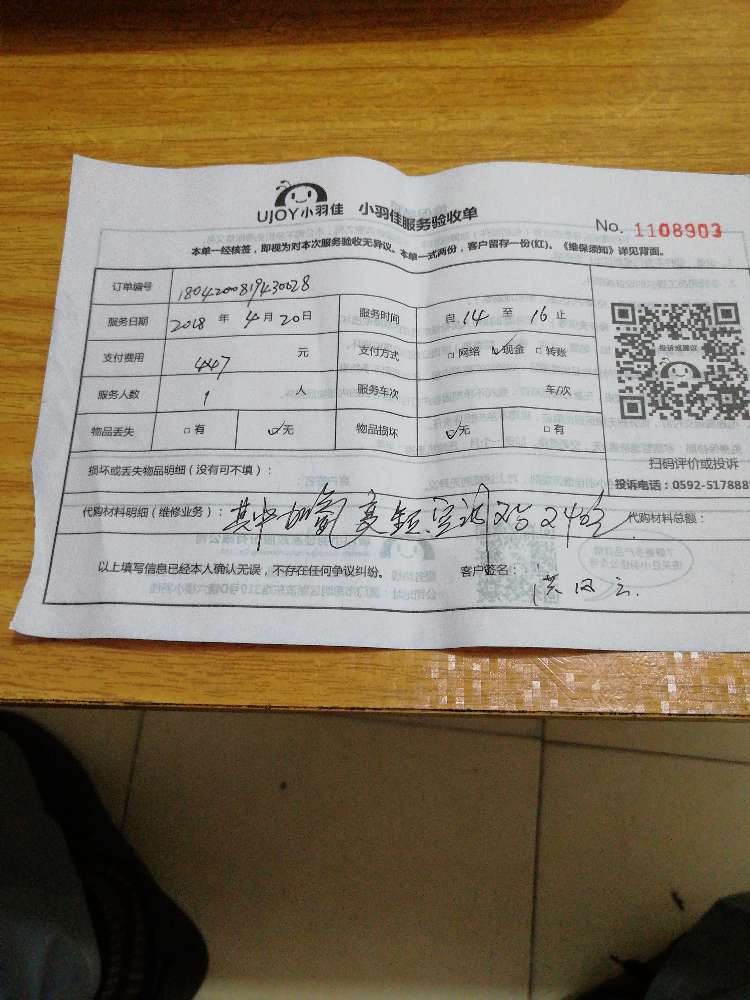 UJOY小羽佳 小羽佳服务验收单
No. 1108903
本单一经核签，即视为对本次服务验收无异议。本单一式两份，客户留存一份(红)。《维保须知》详见背面。
订单编号 1804200819430028
服务日期 2018 年 4 月 20 日 服务时间 自 14 至 16 止
支付费用 447 元 支付方式 □网络 ☑现金 □转账
投诉或建议
服务人数 1 人 服务车次 年/次
物品丢失 □有 ☑无 物品损坏 ☑无 □有
扫码评价或投诉
损坏或丢失物品明细（没有可不填）：
投诉电话：0592-517888
代购材料明细（维修业务）： 其中加氟 变频空调 240 代购材料总额：
以上填写信息已经本人确认无误，不存在任何争议纠纷。 客户签名：